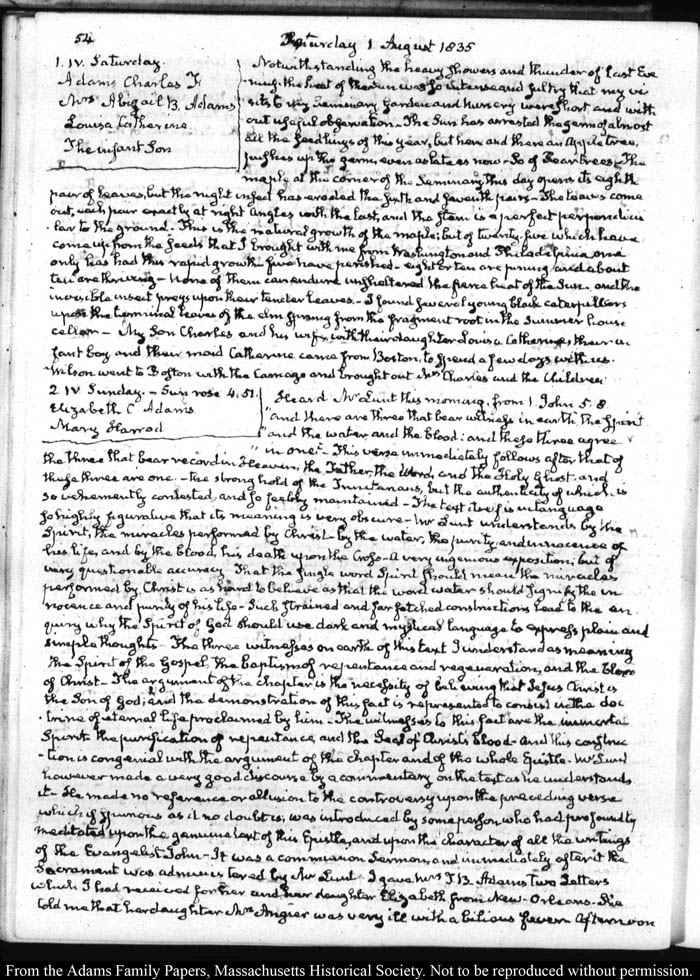 54
Saturday 1 August 1835
1. IV. Saturday.
Adams Charles F.
Mrs Abigail B. Adams
Louisa Catherine.
The infant Son
Notwithstanding the heavy showers and thunder of last Eve
ning, the heat of the sun was so intense and sultry that my vi
sits to my Seminary Garden and Nursery were short and with
out useful observation. The Sun has arrested the germ of almost
all the seedlings of this year, but here and there an Apple tree,
pushes up the germ, even as late as now. So of Pear trees. The
maple at the corner of the Seminary, this day opens its eighth
pair of leaves, but the night insect has eroded the sixth and seventh pairs. The leaves come
out, each pair exactly at right angles with the last, and the stem is a perfect perpendicu
lar to the ground. This is the natural growth of the maple; but of twenty five which have
come up from the seeds that I brought with me from Washington and Philadelphia, one
only has had this rapid growth. five have perished. eight or ten are pining and about
ten are thriving. None of them can endure unsheltered the fierce heat of the Sun, and the
invisible insect preys upon their tender leaves. I found several young black caterpillars
upon the terminal leaves of the elm sprung from the fragment root in the Summer house
My Son Charles and his wife, with their daughter Louisa Catherine, their in
fant boy, and their maid Catherine came from Boston, to spend a few days with us.
Wilson went to Boston with the Carriage and brought out Mrs Charles and the Children
2. IV. Sunday. Sun rose 4.51.
Elizabeth C. Adams
Mary Harrod
Heard Mr Lunt this morning, from 1. John 5. 8
"and there are three that bear witness in earth, the Spirit
"and the water, and the blood: and these three agree
"in one". This verse immediately follows after that of
the three that bear record in Heaven, the Father, the Word, and the Holy Ghost. and
these three are one. The strong hold of the Trinitarians, but the authenticity of which is
so vehemently contested, and so feebly maintained. The text itself is in language
so highly figurative that its meaning is very obscure. Mr Lunt understands by the
Spirit, the miracles performed by Christ. by the water, the purity and innocence of
his life, and by the blood, his death upon the Cross. A very ingenious exposition; but of
very questionable accuracy. That the single word Spirit should mean the miracles
performed by Christ is as hard to believe as that the word water should signify the in
nocence and purity of his life. Such strained and far fetched constructions lead to the en
quiry why the Spirit of God should use dark and mystical language to express plain and
simple thoughts. The three witnesses on earth of this text I understand as meaning
the Spirit of the Gospel, the baptism of repentance and regeneration, and the blood
of Christ. The argument of the chapter is the necessity of believing that Jesus Christ is
the Son of God; and the demonstration of this fact is represented to consist in the doc
trine of eternal life proclaimed by him. The witnesses to this fact are the immortal
Spirit. the purification of repentance, and the Seal of Christ's blood. And this construc
tion is congenial with the argument of the chapter and of the whole Epistle. Mr Lunt
however made a very good discourse by a commentary on the text as he understands
it. He made no reference or allusion to the controversy upon the preceding verse
which if spurious as it no doubt is, was introduced by some person who had profoundly
meditated upon the genuine text of this Epistle, and upon the character of all the writings
of the Evangelist John. It was a communion Sermon, and immediately after it the
Sacrament was administered by Mr Lunt. I gave Mrs T. B. Adams two Letters
which I had received for her and her daughter Elizabeth from New-Orleans. She
told me that her daughter Mrs Angier was very ill with a bilious fever. Afternoon
From the Adams Family Papers, Massachusetts Historical Society. Not to be reproduced without permission.